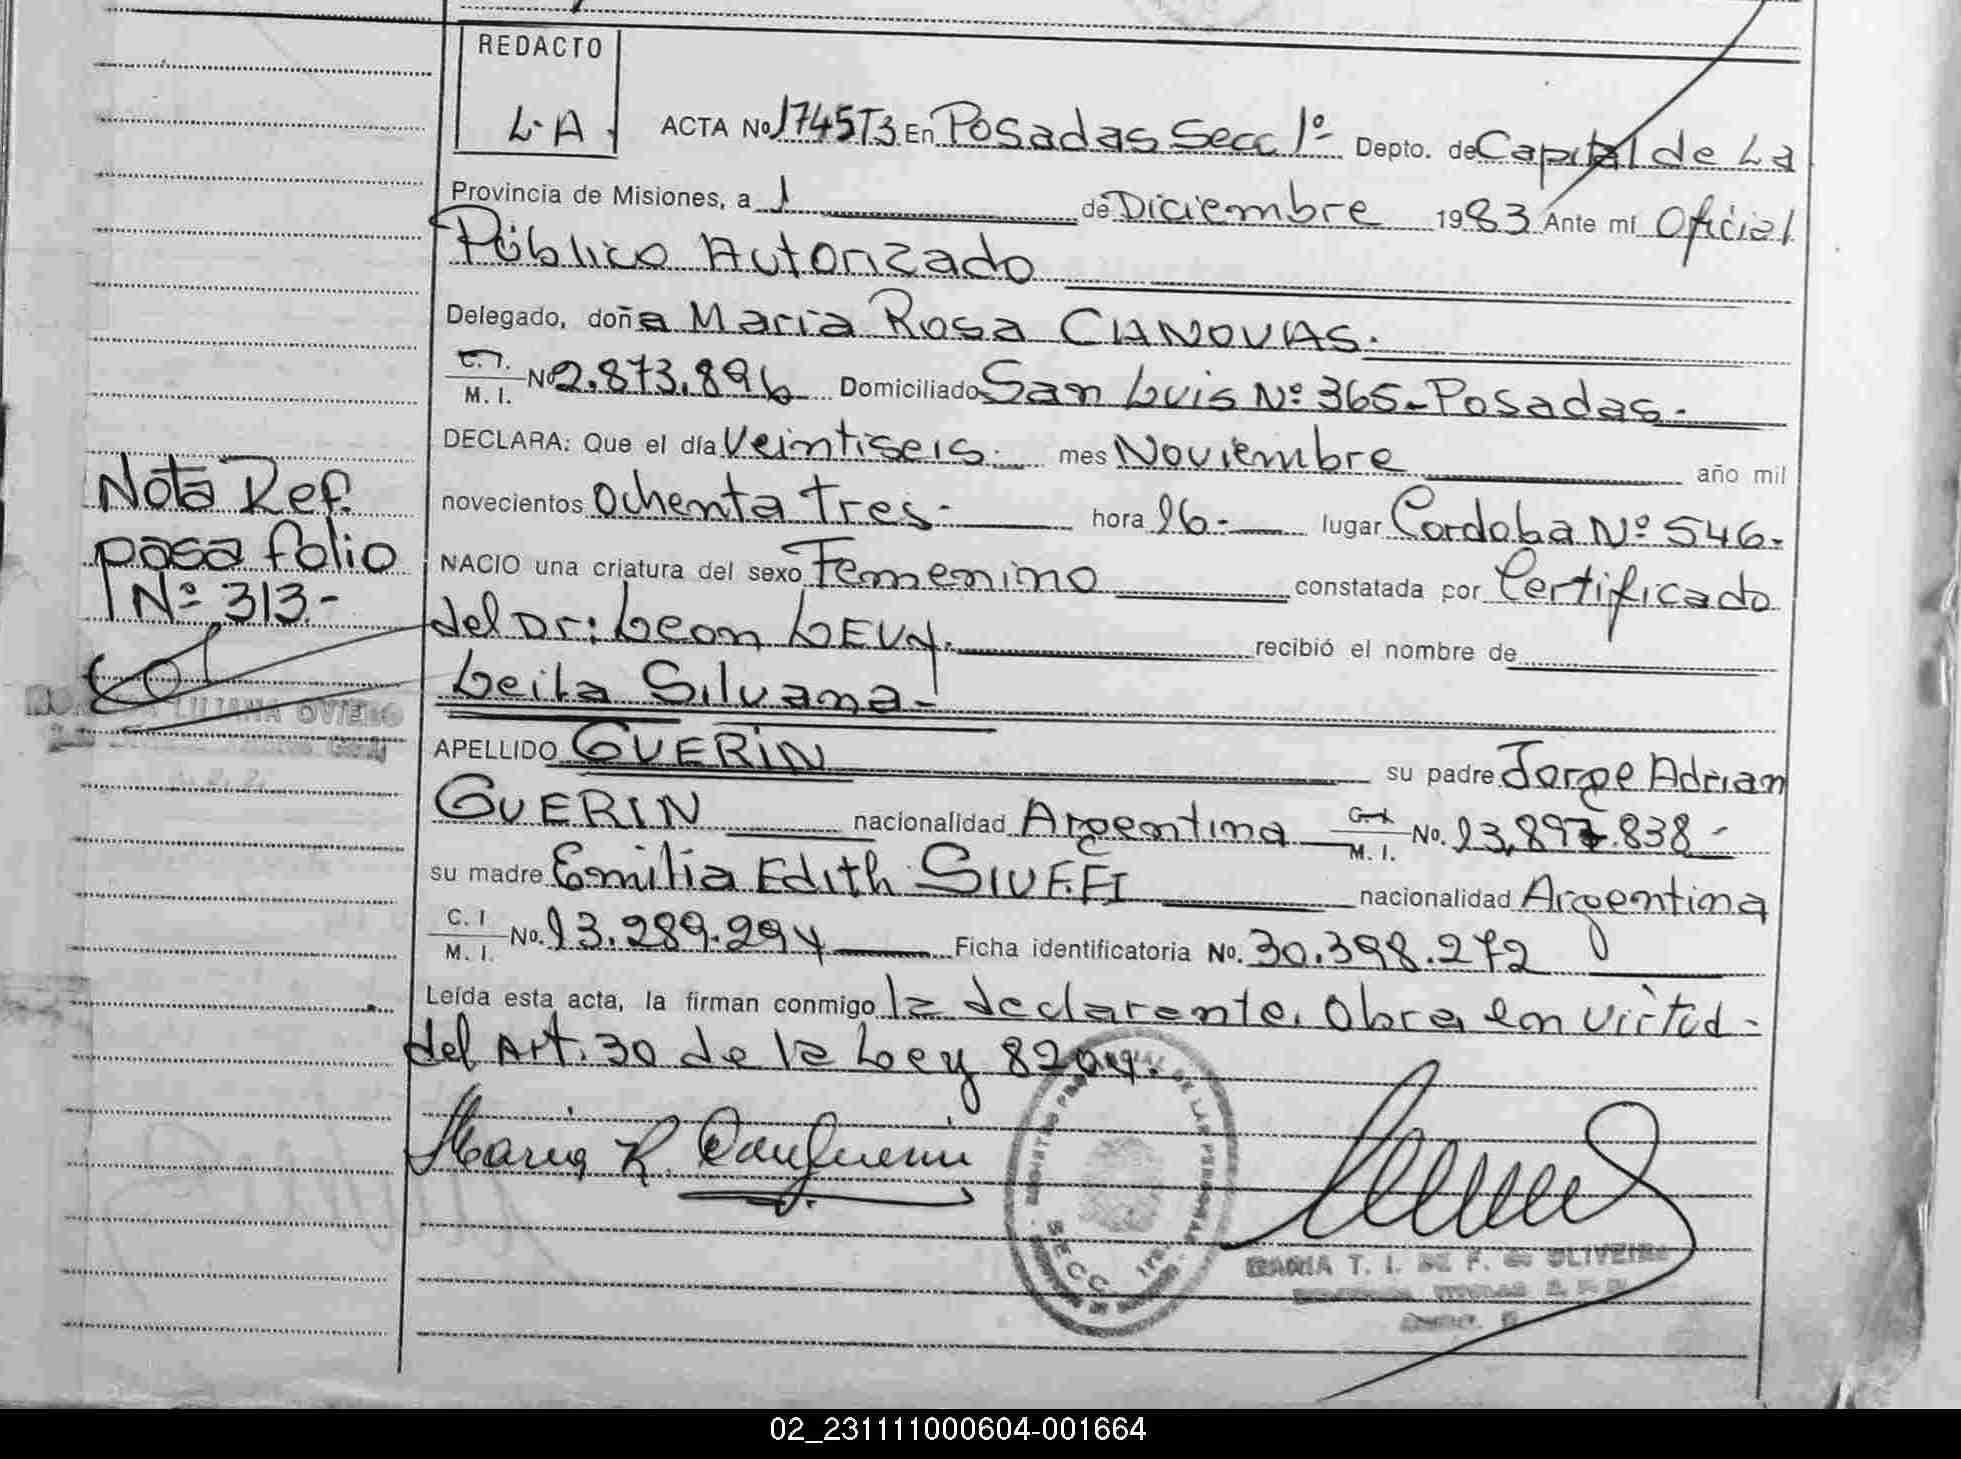 REDACTO
L. A.
ACTA No 1745T3 En Posadas Secc 1º Depto. de Capital de La
Provincia de Misiones, a 1 de Diciembre 1983 Ante mí Oficial
Público Autorizado
Delegado, doña Maria Rosa CANOVAS.
C.I. M. I. No 2.873.896 Domiciliado San Luis Nº 365-Posadas.
DECLARA: Que el día Veintiseis. mes Noviembre año mil
novecientos Ochenta tres- hora 16.- lugar Cordoba Nº 546.
NACIO una criatura del sexo Femenino constatada por Certificado
del Dr: Leon LEVY. recibió el nombre de
Leila Silvana-
APELLIDO GUERIN su padre Jorge Adrian
GUERIN nacionalidad Argentina M. I. No. 13.897.838-
su madre Emilia Edith SIUFFI nacionalidad Argentina
C. I M. I. No. 13.289.294 Ficha identificatoria No. 30.398.272
Leída esta acta, la firman conmigo la declarante. Obra en virtud-
del Art. 30 de la Ley 8204.
Maria R.
SECC 1RA
MARIA T. I. DE F. de OLIVEIRA
Nota Ref.
pasa folio
Nº 313-
LILIANA OVIEDO
02_231111000604-001664